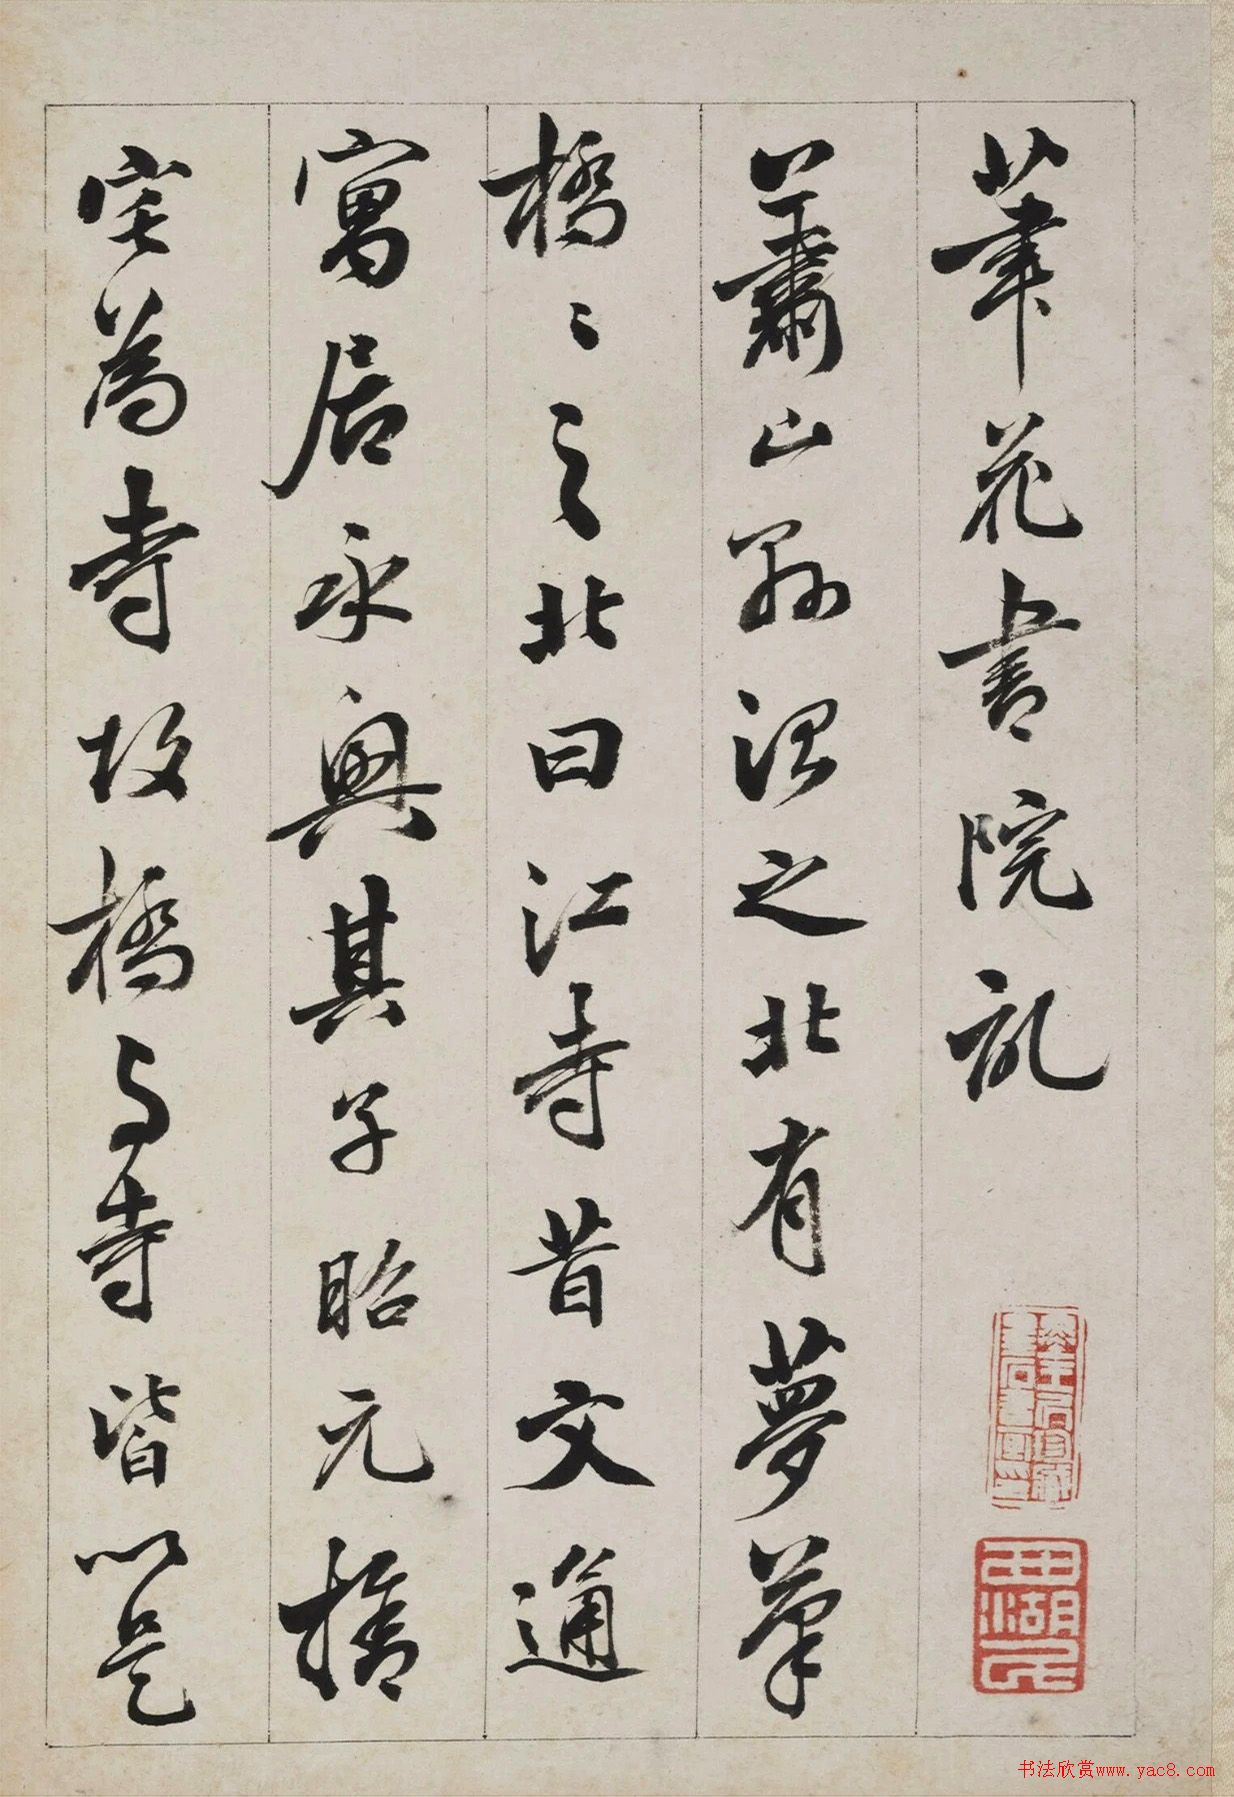 筆花書院記
蕭山縣治之北有夢筆
橋橋之北曰江寺昔文通
寓居永興其子昭元捨
宅為寺故橋與寺皆以是
西湖民
书法欣赏www.yac8.com